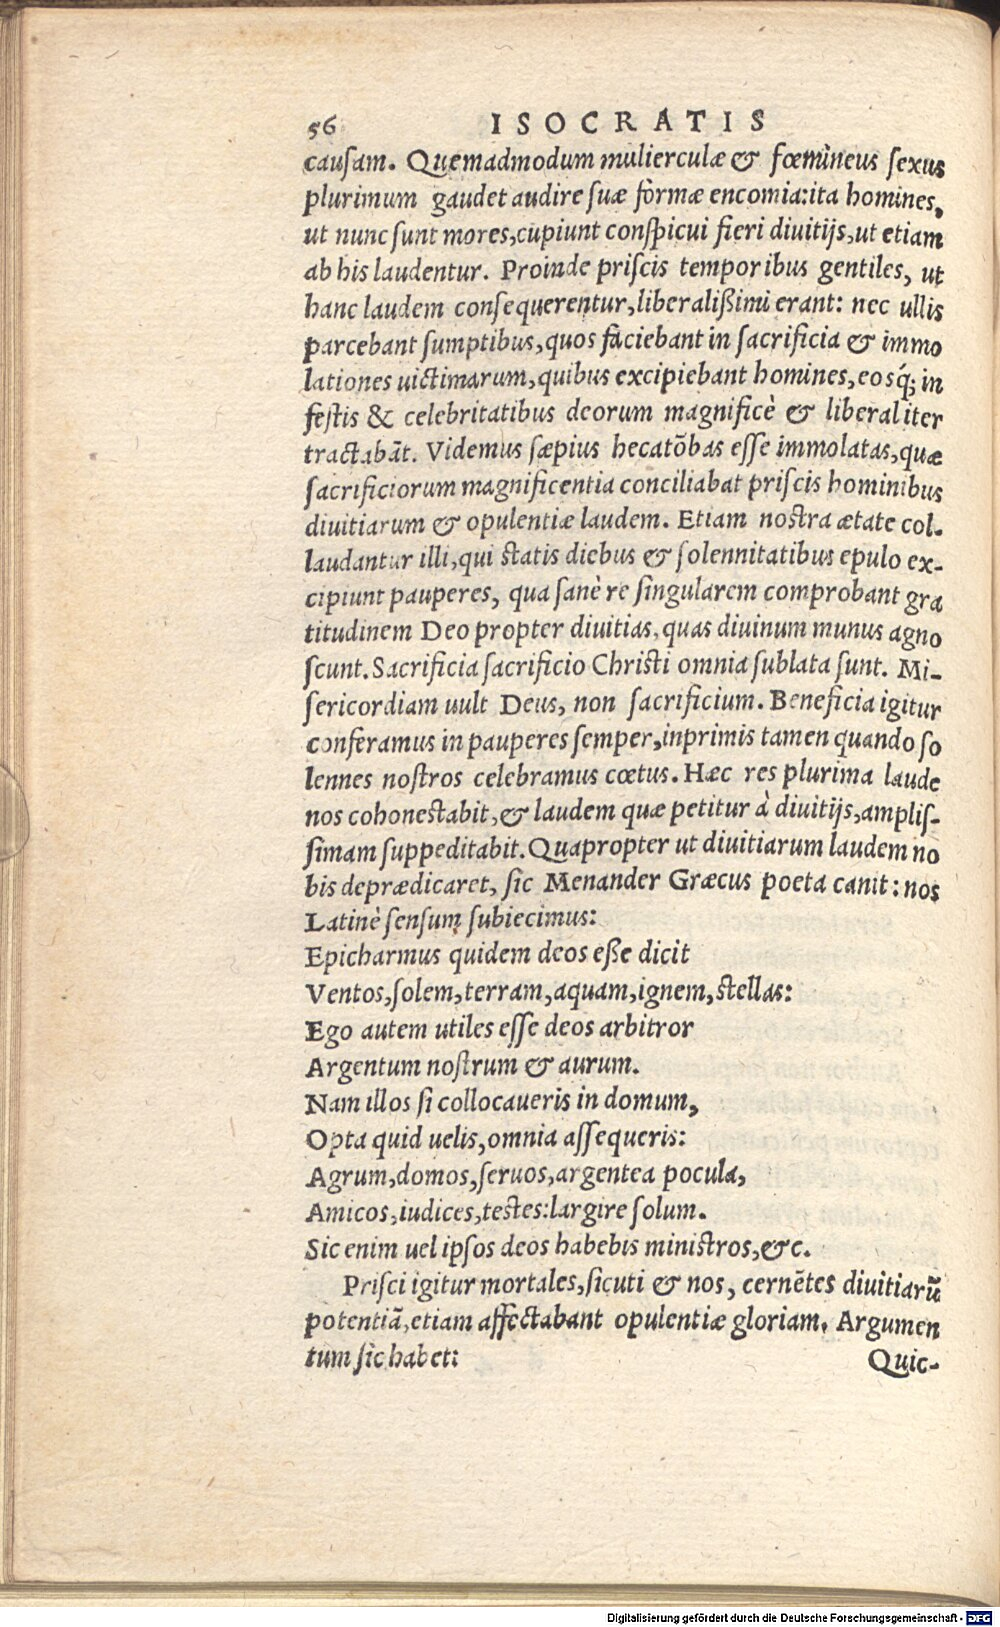 56 ISOCRATIS
causam. Quemadmodum mulierculæ & fœmineus sexus
plurimum gaudet audire suæ formæ encomia:ita homines,
ut nunc sunt mores,cupiunt conspicui fieri diuitijs,ut etiam
ab his laudentur. Proinde priscis temporibus gentiles, ut
hanc laudem consequerentur,liberalißimi erant: nec ullis
parcebant sumptibus,quos faciebant in sacrificia & immo
lationes uictimarum,quibus excipiebant homines,eosq́; in
festis & celebritatibus deorum magnificè & liberaliter
tractabāt. Videmus sæpius hecatōbas esse immolatas,quæ
sacrificiorum magnificentia conciliabat priscis hominibus
diuitiarum & opulentiæ laudem. Etiam nostra ætate col-
laudantur illi,qui statis diebus & solennitatibus epulo ex-
cipiunt pauperes, qua sanè re singularem comprobant gra
titudinem Deo propter diuitias,quas diuinum munus agno
scunt. Sacrificia sacrificio Christi omnia sublata sunt. Mi-
sericordiam uult Deus, non sacrificium. Beneficia igitur
conferamus in pauperes semper,inprimis tamen quando so
lennes nostros celebramus cœtus. Hæc res plurima laude
nos cohonestabit,& laudem quæ petitur à diuitijs,amplis-
simam suppeditabit. Quapropter ut diuitiarum laudem no
bis deprædicaret, sic Menander Græcus poeta canit: nos
Latinè sensum subiecimus:
Epicharmus quidem deos eße dicit
Ventos,solem,terram,aquam,ignem,stellas:
Ego autem utiles esse deos arbitror
Argentum nostrum & aurum.
Nam illos si collocaueris in domum,
Opta quid uelis,omnia assequeris:
Agrum,domos,seruos,argentea pocula,
Amicos,iudices,testes:largire solum.
Sic enim uel ipsos deos habebis ministros,&c.
Prisci igitur mortales,sicuti & nos, cernētes diuitiarū
potentiā,etiam affectabant opulentiæ gloriam. Argumen
tum sic habet: Quic-
Digitalisierung gefördert durch die Deutsche Forschungsgemeinschaft - DFG